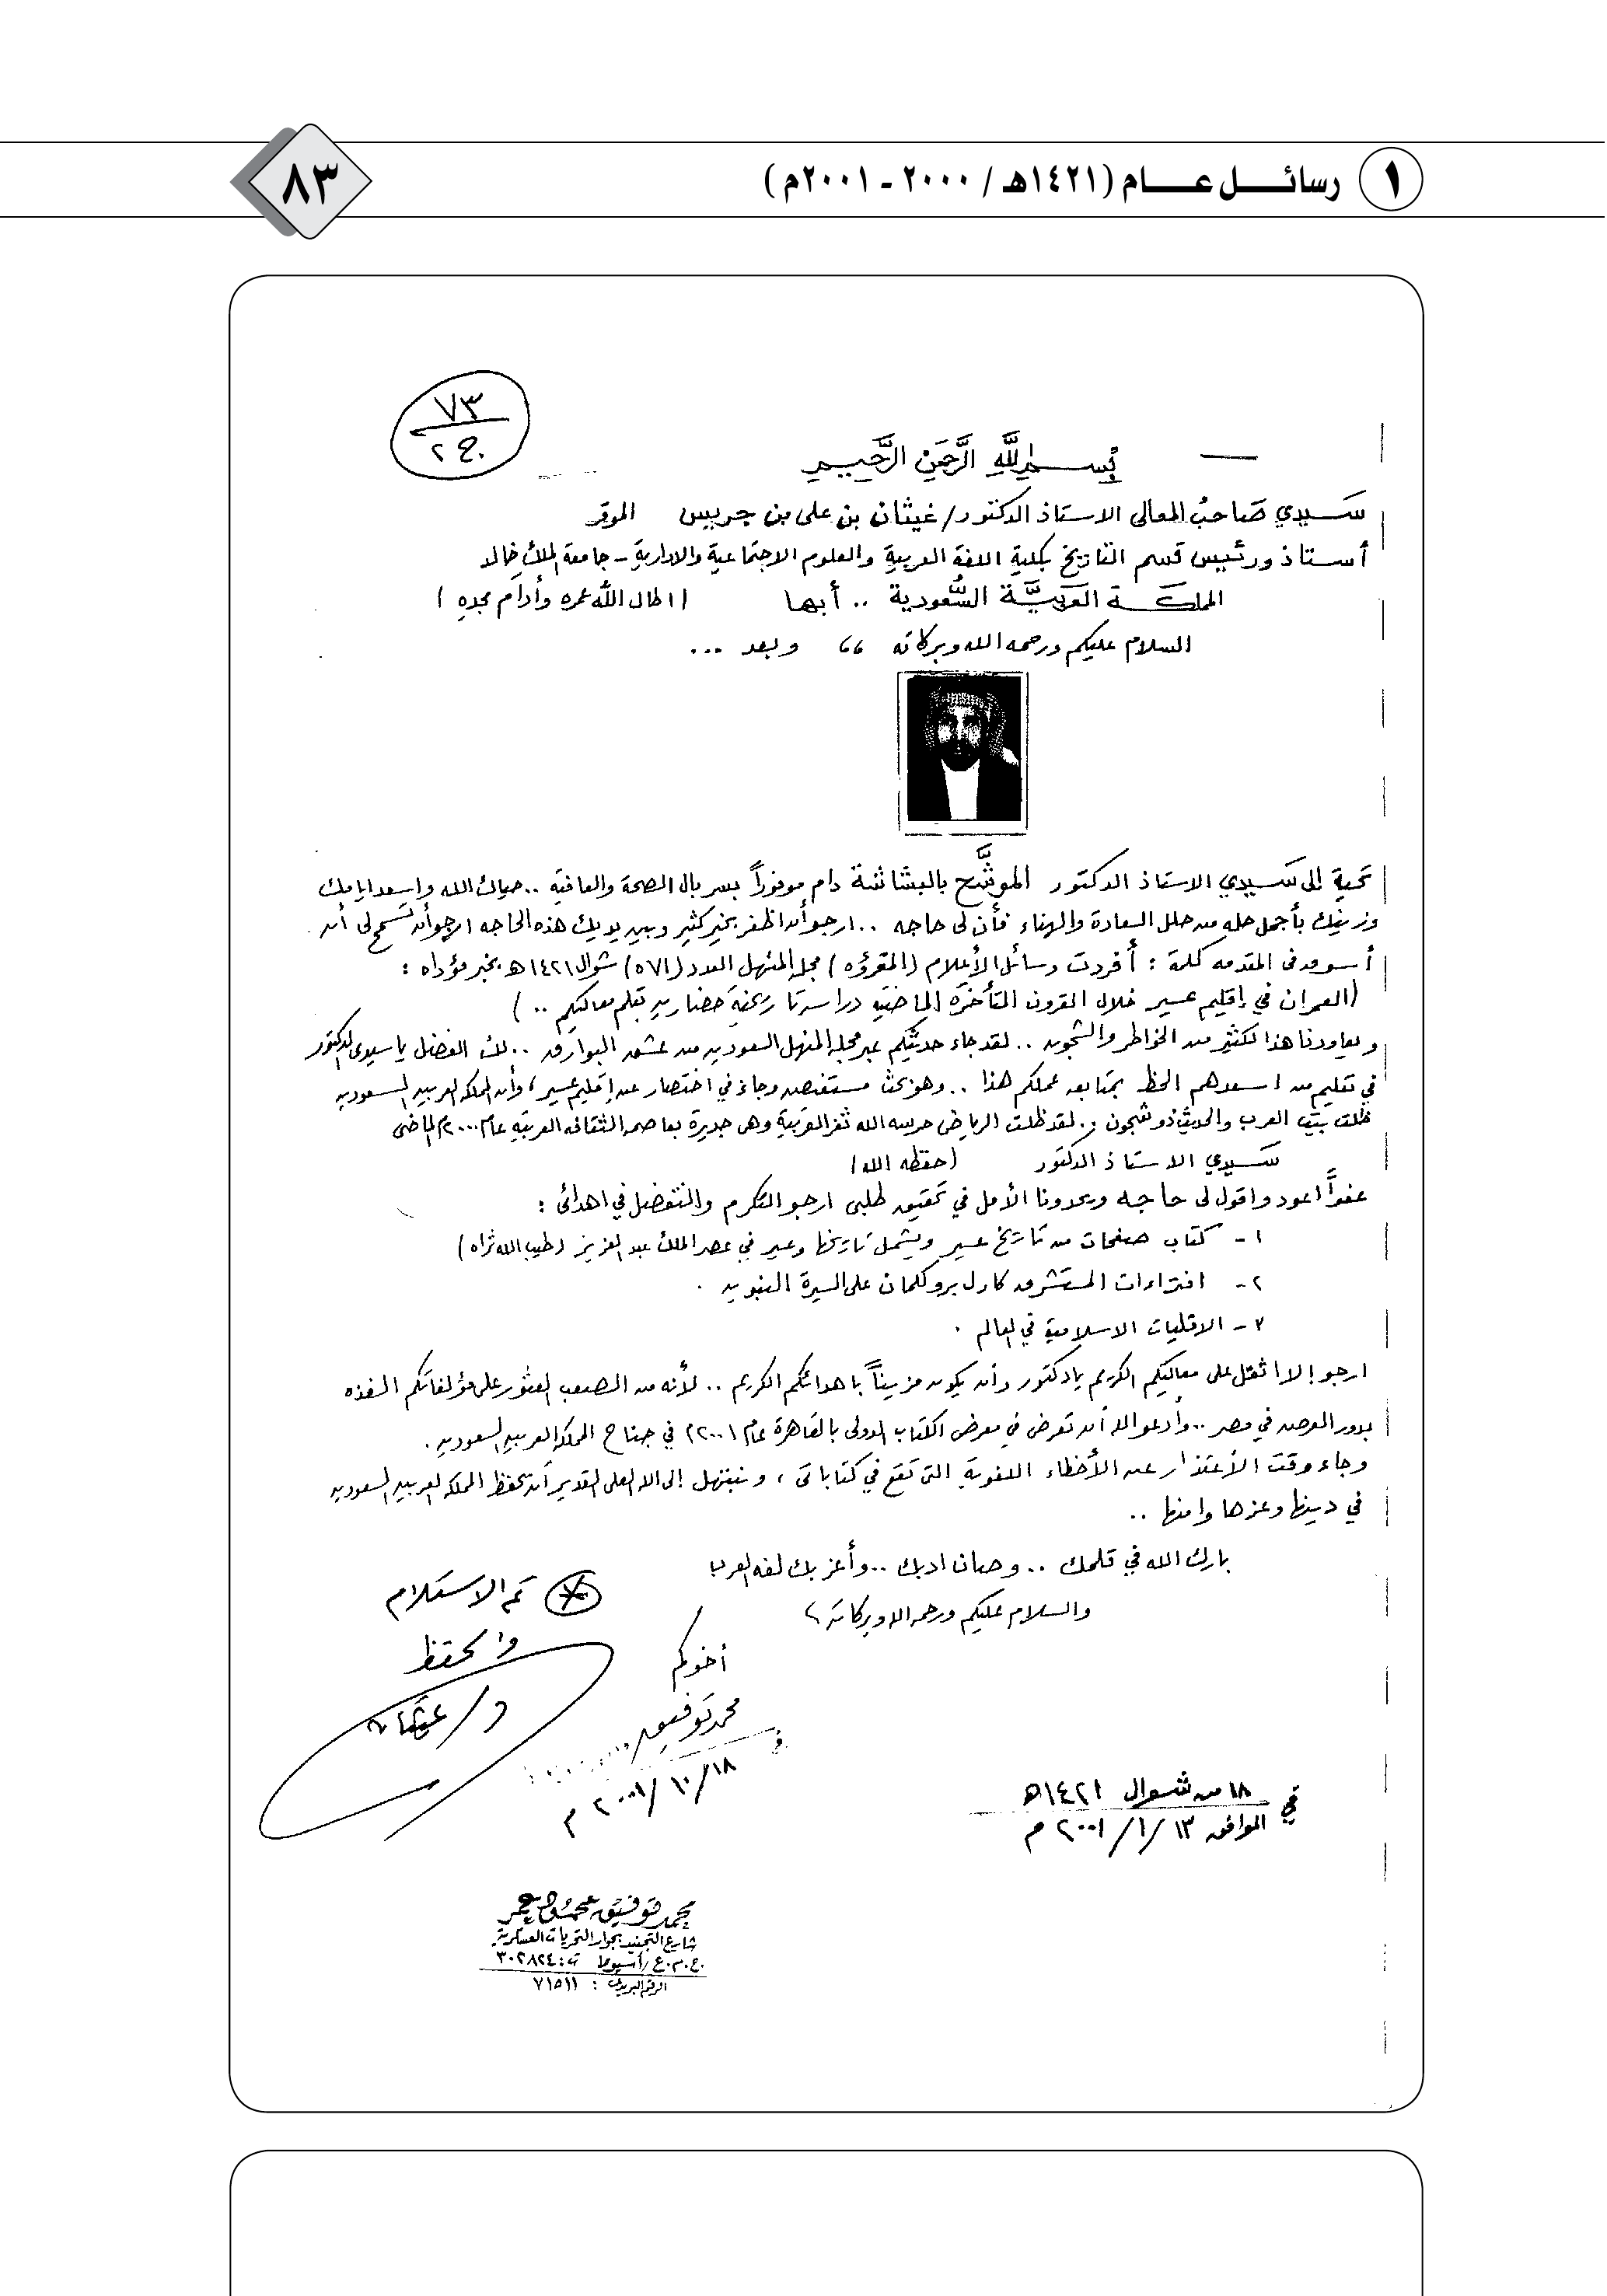 ١ رسائل عام (١٤٢١هـ / ٢٠٠٠ - ٢٠٠١م)
٨٣
٧٣
ج ٢
بسم الله الرحمن الرحيم
سيدي صاحب المعالى الاستاذ الدكتور/ غيثان بن على بن جريس الموقر
أستاذ ورئيس قسم التاريخ بكلية اللغة العربية والعلوم الاجتماعية والادارية - جامعة الملك خالد
المملكة العربيَّة السُّعودية .. أبها (اطال الله عمره وأدام مجده)
السلام عليكم ورحمه الله وبركاته ،، وبعد ...
تحية إلى سيدي الاستاذ الدكتور الموشَّح بالبشاشة دام موفوراً بسربال الصحة والعافية .. حياك الله واسعد ايامك
وزينك بأجمل حله من حلل السعادة والهناء فأن لى حاجه .. ارجو أن اظفر بخير كثير وبين يديك هذه الحاجه ارجو أن تسمح لى أن
أسوق فى المقدمه كلمة : أفردت رسائل الأعلام (المقروءه) مجله المنهل العدد (٥٧١) شوال ١٤٢١هـ بخبر مؤداه :
(العمران في إقليم عسير خلال القرون المتأخرة الماضية دراسة تاريخية حضاريه بقلم معاليكم .. )
ويعاودنا هذا لكثير من الخواطر والشجون .. لقد جاء حديثكم عبر مجله المنهل السعوديه من عشق البوارق .. لك الفضل يا سيدى الدكتور
في تعليم من اسعدهم الحظ بمتابعه عملكم هذا .. وهو بحث مستفيض وجاء في اختصار عن إقليم عسير ، وأن المملكه العربيه السعوديه
ظلت بيت العرب والحديث ذو شجون .. لقد ظلت الرياض حرسه الله ثغر العربية وهى جديرة بعاصمه الثقافه العربية عام ٢٠٠٠م الماضى
سيدي الاستاذ الدكتور (حفظه الله)
عفواً اعود واقول لى حاجه ويحدونا الأمل في تحقيق طلبى ارجو التكرم والتفضل في اهدائى :
١- كتاب صفحات من تاريخ عسير ويشمل تاريخها وعسير في عصر الملك عبد العزيز (طيب الله ثراه)
٢- افتراءات المستشرق كارل بروكلمان على السيرة النبويه .
٣- الاقليات الاسلامية في العالم .
ارجو إلا اثقل على معاليكم الكريم يا دكتور وأن يكون مزيناً باهدائكم الكريم .. لأنه من الصعب العثور على مؤلفاتكم الفذه
بدور العرض في مصر .. وأدعو الله أن تعرض في معرض الكتاب الدولى بالقاهرة عام ٢٠٠١م في جناح المملكه العربيه السعوديه .
وجاء وقت الأعتذار عن الأخطاء اللغوية التى تقع في كتاباتى ، ونبتهل إلى الله العلى القدير أن يحفظ المملكه العربيه السعوديه
في دينها وعزها وامنها ..
بارك الله في قلمك .. وصان ادبك .. وأعز بك لغه العرب
والسلام عليكم ورحمه الله وبركاته ،
تم الاستلام
ويحفظ
د/ غيثان
أخوكم
محمد توفيق
في ١٨/١٠/٢٠٠١م
في ١٨ من شوال ١٤٢١هـ
الموافق ١٣/١/٢٠٠١م
محمد توفيق
شارع التجنيد بجوار التحريات العسكرية
ج.م.ع / أسيوط ت: ٣٠٢٨٢٤
الرقم البريدى : ٧١٥١١